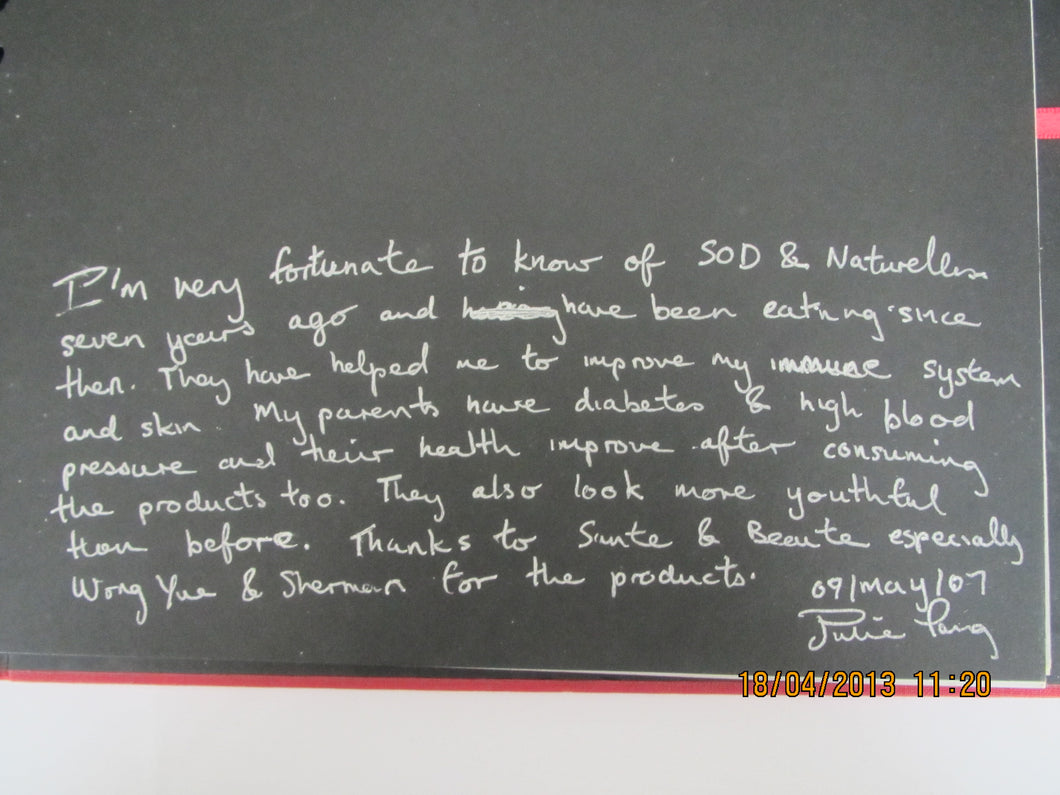 I'm very fortunate to know of SOD & Naturellin
seven years ago and have been eating since
then. They have helped me to improve my immune system
and skin. My parents have diabetes & high blood
pressure and their health improve after consuming
the products too. They also look more youthful
than before. Thanks to Sante & Beaute especially
Wong Yue & Sherman for the products.
09/May/07
Julie
18/04/2013 11:20